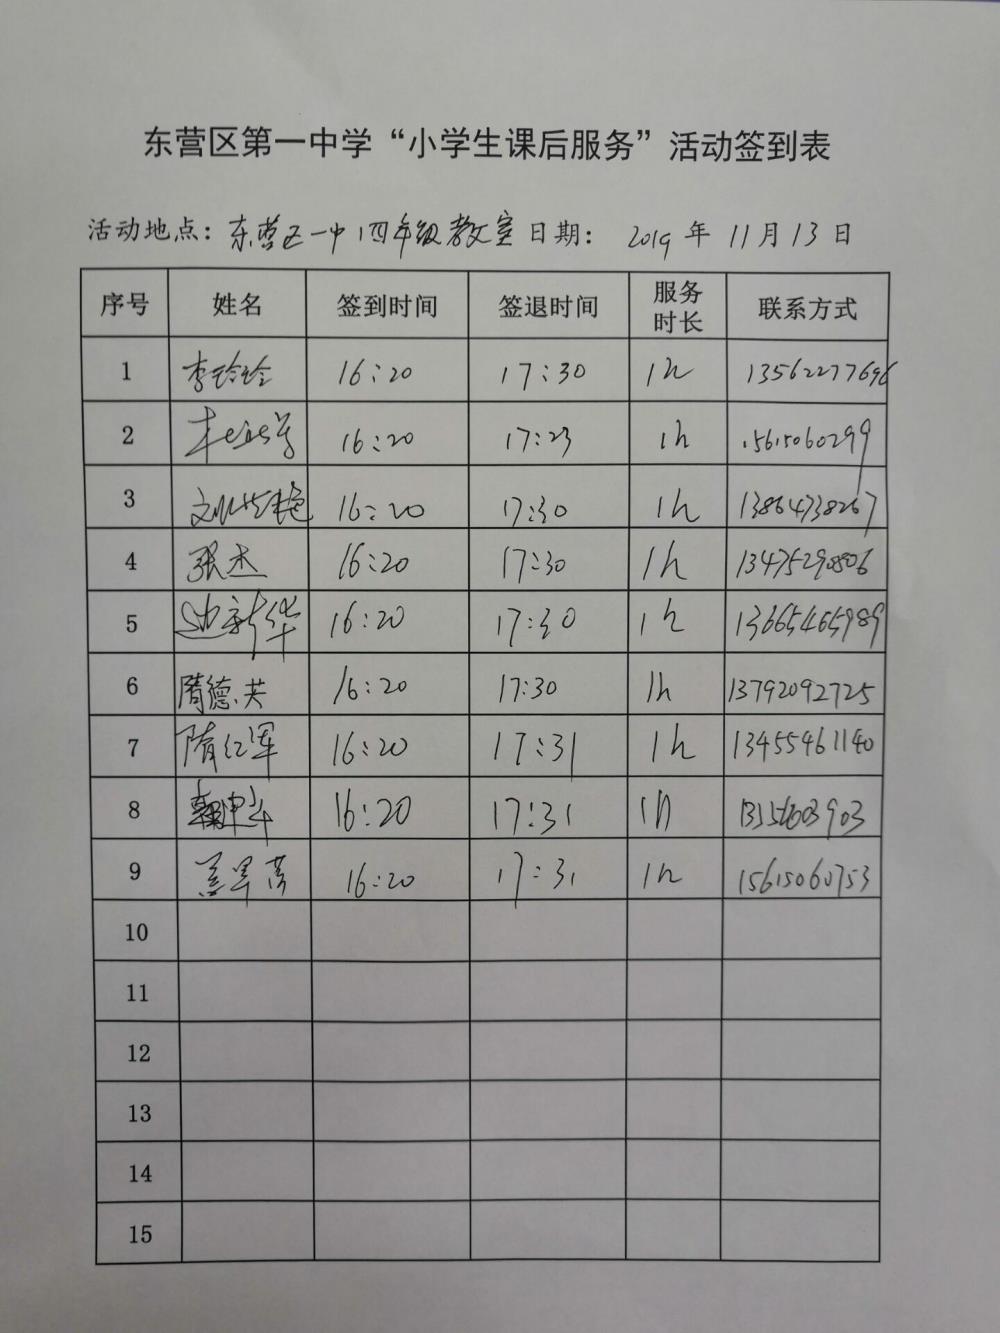 东营区第一中学“小学生课后服务”活动签到表
活动地点：东营区一中四年级教室 日期： 2019 年 11 月 13 日
序号 姓名 签到时间 签退时间 服务时长 联系方式
1 李玲玲 16:20 17:30 1h 13562277696
2 16:20 17:23 1h 15615060299
3 16:20 17:30 1h 13864738267
4 张杰 16:20 17:30 1h 13475290806
5 边新华 16:20 17:30 1h 13665465989
6 隋德英 16:20 17:30 1h 13792092725
7 隋红军 16:20 17:31 1h 13455461140
8 16:20 17:31 1h
9 16:20 17:31 1h 15615060753
10
11
12
13
14
15